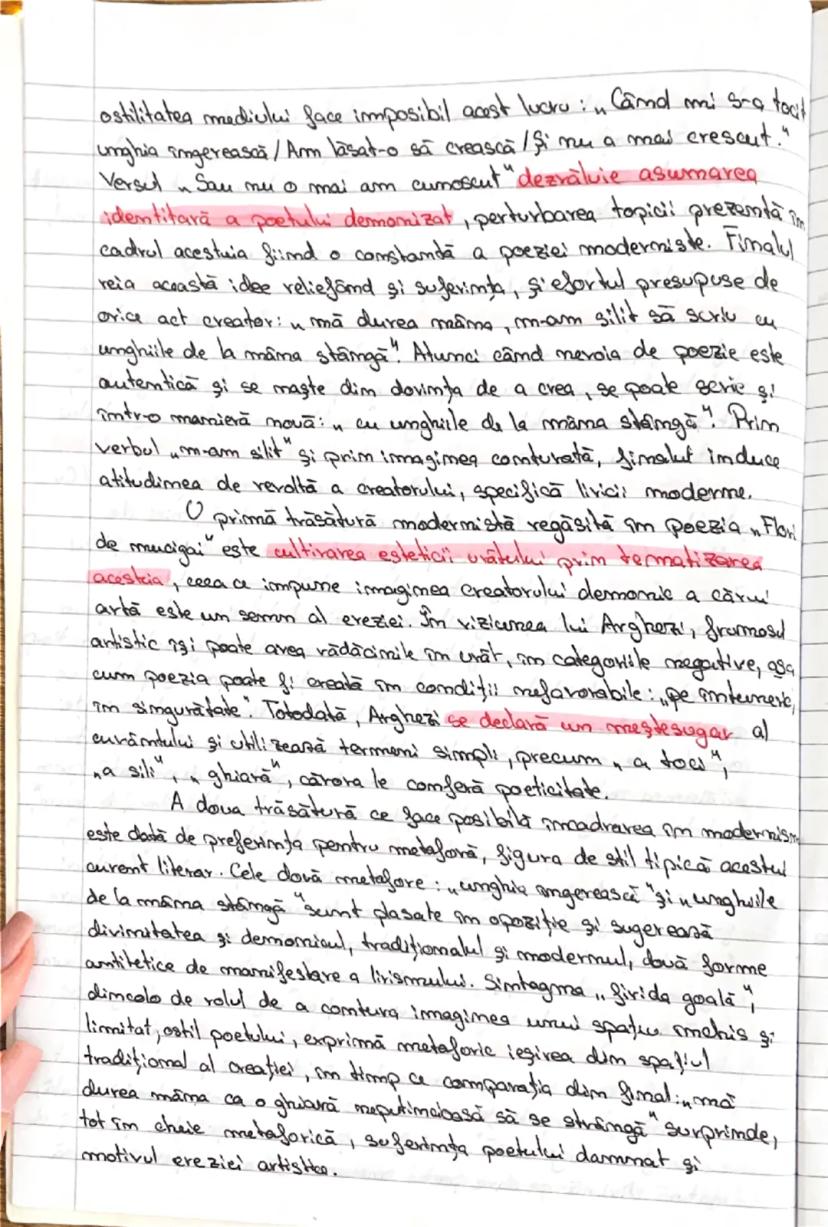 ostilitatea mediului face imposibil acest lucru : „Când mi s-a tocit
unghia îngerească / Am lăsat-o să crească / Și nu a mai crescut."
Versul „Sau nu o mai am cunoscut" dezvăluie asumarea
identitară a poetului demonizat, perturbarea topicii prezentă în
cadrul acestuia fiind o constantă a poeziei moderniste. Finalul
reia această idee reliefând și suferința, și efortul presupuse de
orice act creator: „mă durea mâna, m-am silit să scriu cu
unghiile de la mâna stângă". Atunci când nevoia de poezie este
autentică și se naște din dorința de a crea, se poate scrie și
într-o manieră nouă: „cu unghiile de la mâna stângă". Prin
verbul „m-am silit" și prin imaginea conturată, finalul induce
atitudinea de revoltă a creatorului, specifică liricii moderne.
O primă trăsătură modernistă regăsită în poezia „Flori
de mucigai" este cultivarea esteticii urâtului prin tematizarea
acesteia, ceea ce impune imaginea creatorului demonic a cărui
artă este un semn al ereziei. În viziunea lui Arghezi, frumosul
artistic își poate avea rădăcinile în urât, în categoriile negative, așa
cum poezia poate fi creată în condiții nefavorabile: „pe întuneric,
în singurătate". Totodată, Arghezi se declară un meșteșugar al
cuvântului și utilizează termeni simpli, precum „a toci",
„a sili", „ghiară", cărora le conferă poeticitate.
A doua trăsătură ce face posibilă încadrarea în modernism
este dată de preferința pentru metaforă, figura de stil tipică acestui
curent literar. Cele două metafore: „unghia îngerească" și „unghiile
de la mâna stângă" sunt plasate în opoziție și sugerează
divinitatea și demonicul, tradiționalul și modernul, două forme
antitetice de manifestare a lirismului. Sintagma „firida goală",
dincolo de rolul de a contura imaginea unui spațiu închis și
limitat, ostil poetului, exprimă metaforic ieșirea din spațiul
tradițional al creației, în timp ce comparația din final: „mă
durea mâna ca o ghiară neputincioasă să se strângă" surprinde,
tot în cheie metaforică, suferința poetului damnat și
motivul ereziei artistice.